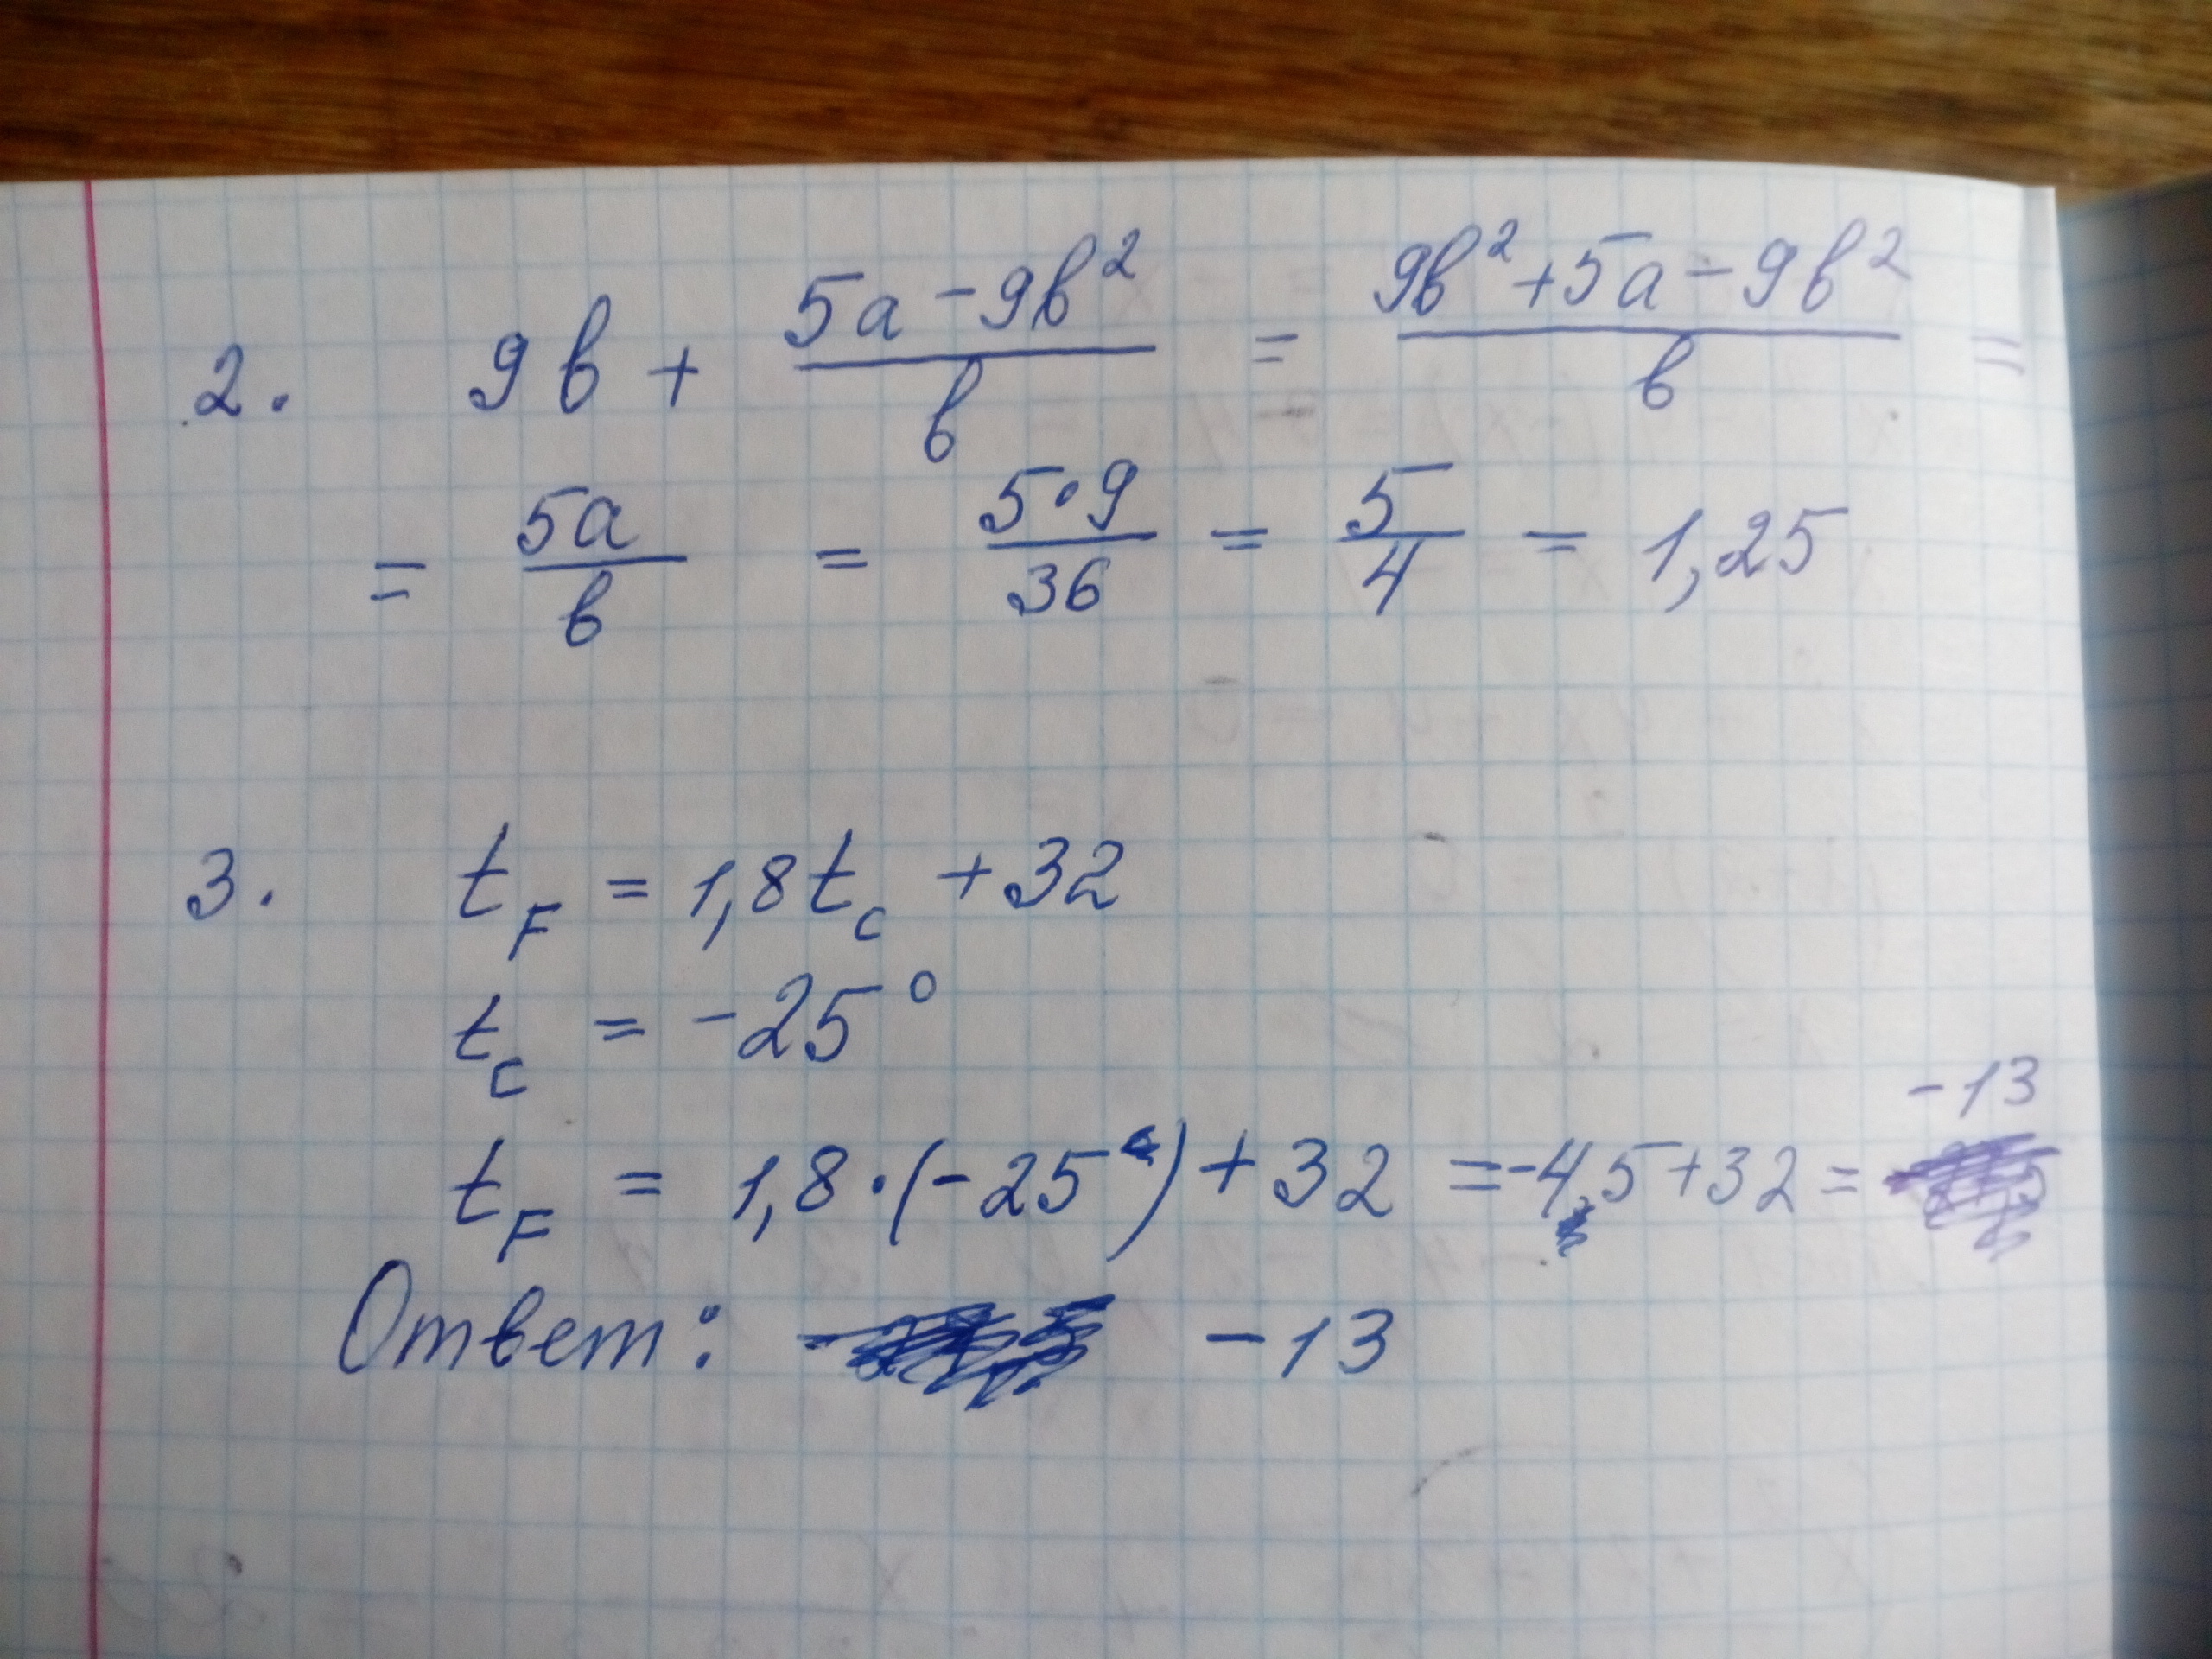 2. 9b + (5a - 9b²)/b = (9b² + 5a - 9b²)/b =
= 5a/b = (5·9)/36 = 5/4 = 1,25
3. t_F = 1,8t_C + 32
t_C = -25°
t_F = 1,8·(-25) + 32 = -45 + 32 = -13
Ответ: -13